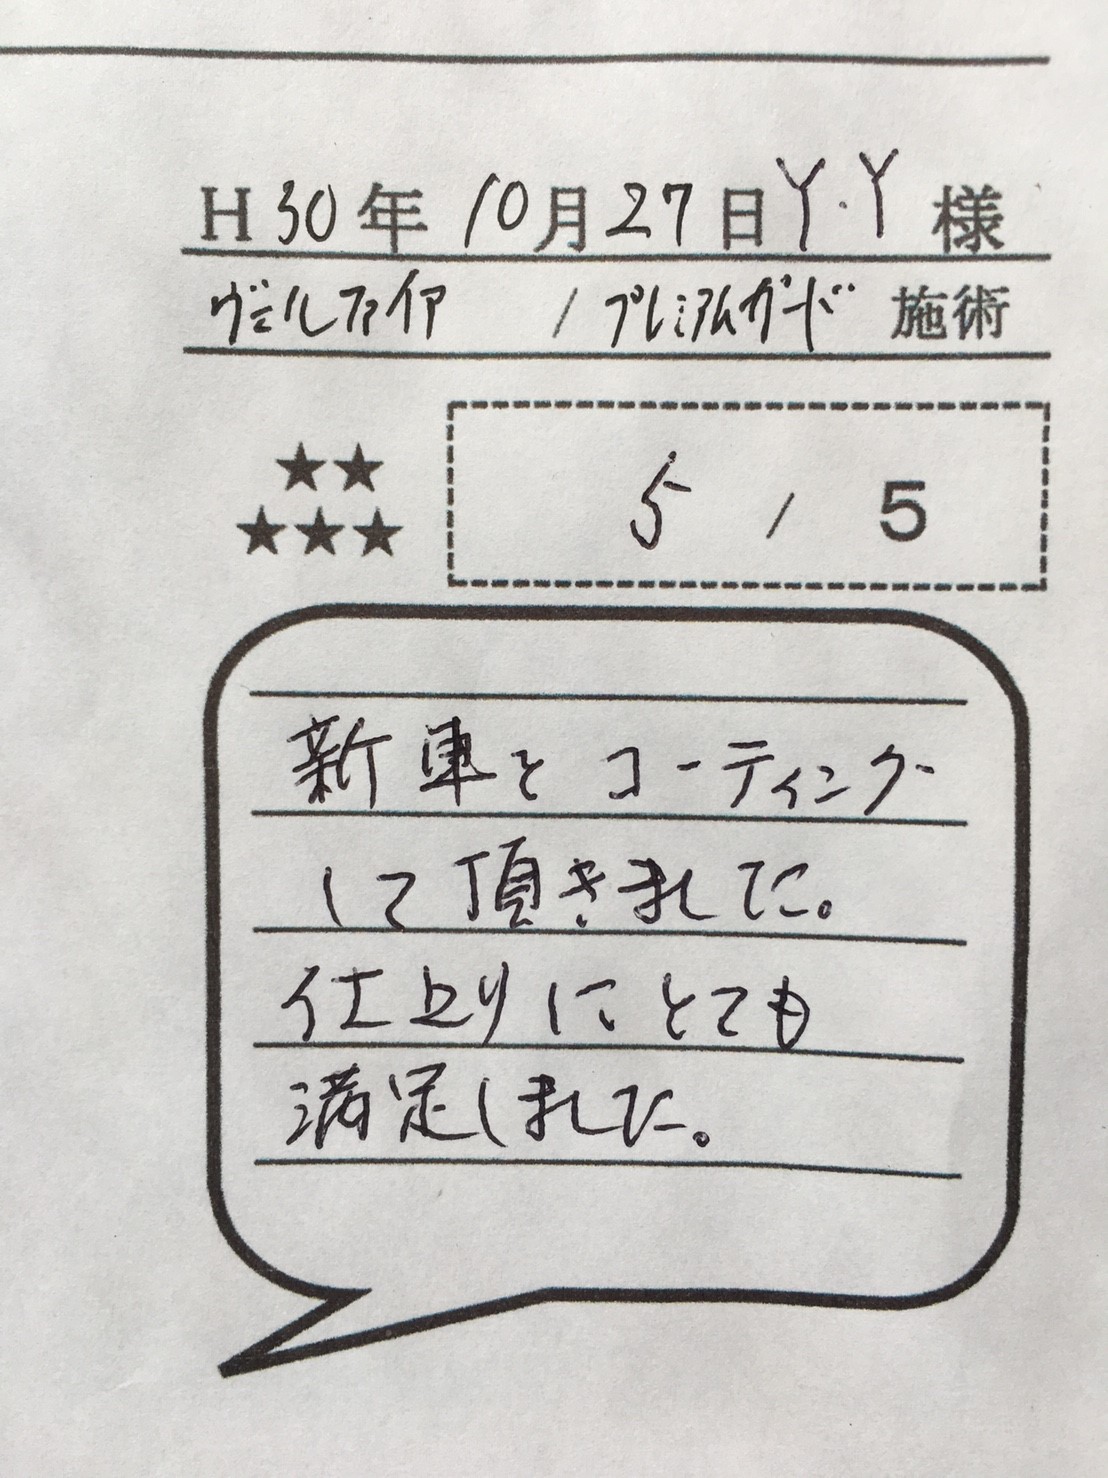 H30年10月27日Y.Y様
ヴェルファイア / プレミアムガード 施術
★★
★★★
5 / 5
新車をコーティング
して頂きました。
仕上りにとても
満足しました。